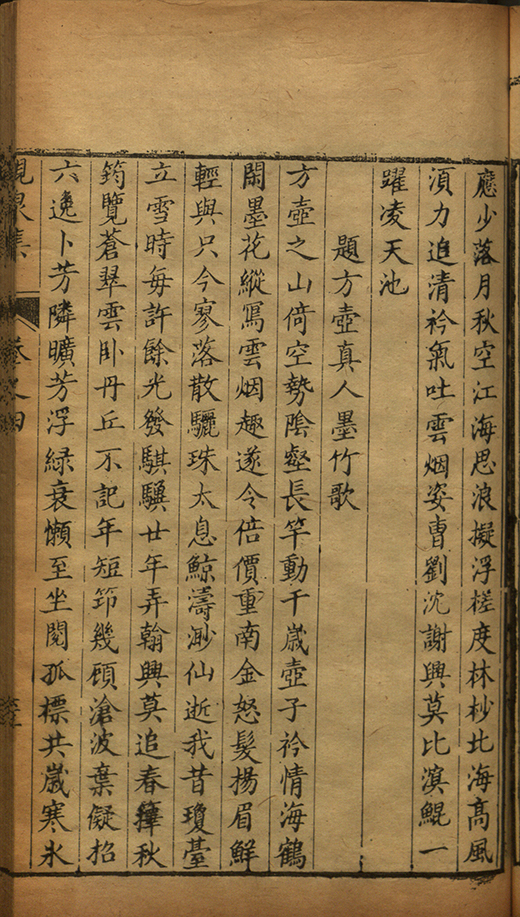 應少落月秋空江海思浪擬浮槎度林杪比海高風
湏力追清衿氣吐雲烟姿曹劉沈謝興莫比溟鯤一
躍凌天池
題方壺真人墨竹歌
方壺之山倚空勢陰壑長竿動千歲壺子衿情海鶴
閑墨花縱寫雲烟趣遂令倍價重南金怒髮揚眉鮮
輕與只今寥落散驪珠太息鯨濤渺仙逝我昔瓊臺
立雪時每許餘光發騏驥廿年弄翰興莫追春秋
筠覽蒼翠雲卧丹丘不記年短笻幾顧滄波棄儗招
六逸卜芳隣曠芳浮綠衰懶至坐閱孤標共歲寒氷
峴泉集 卷之四